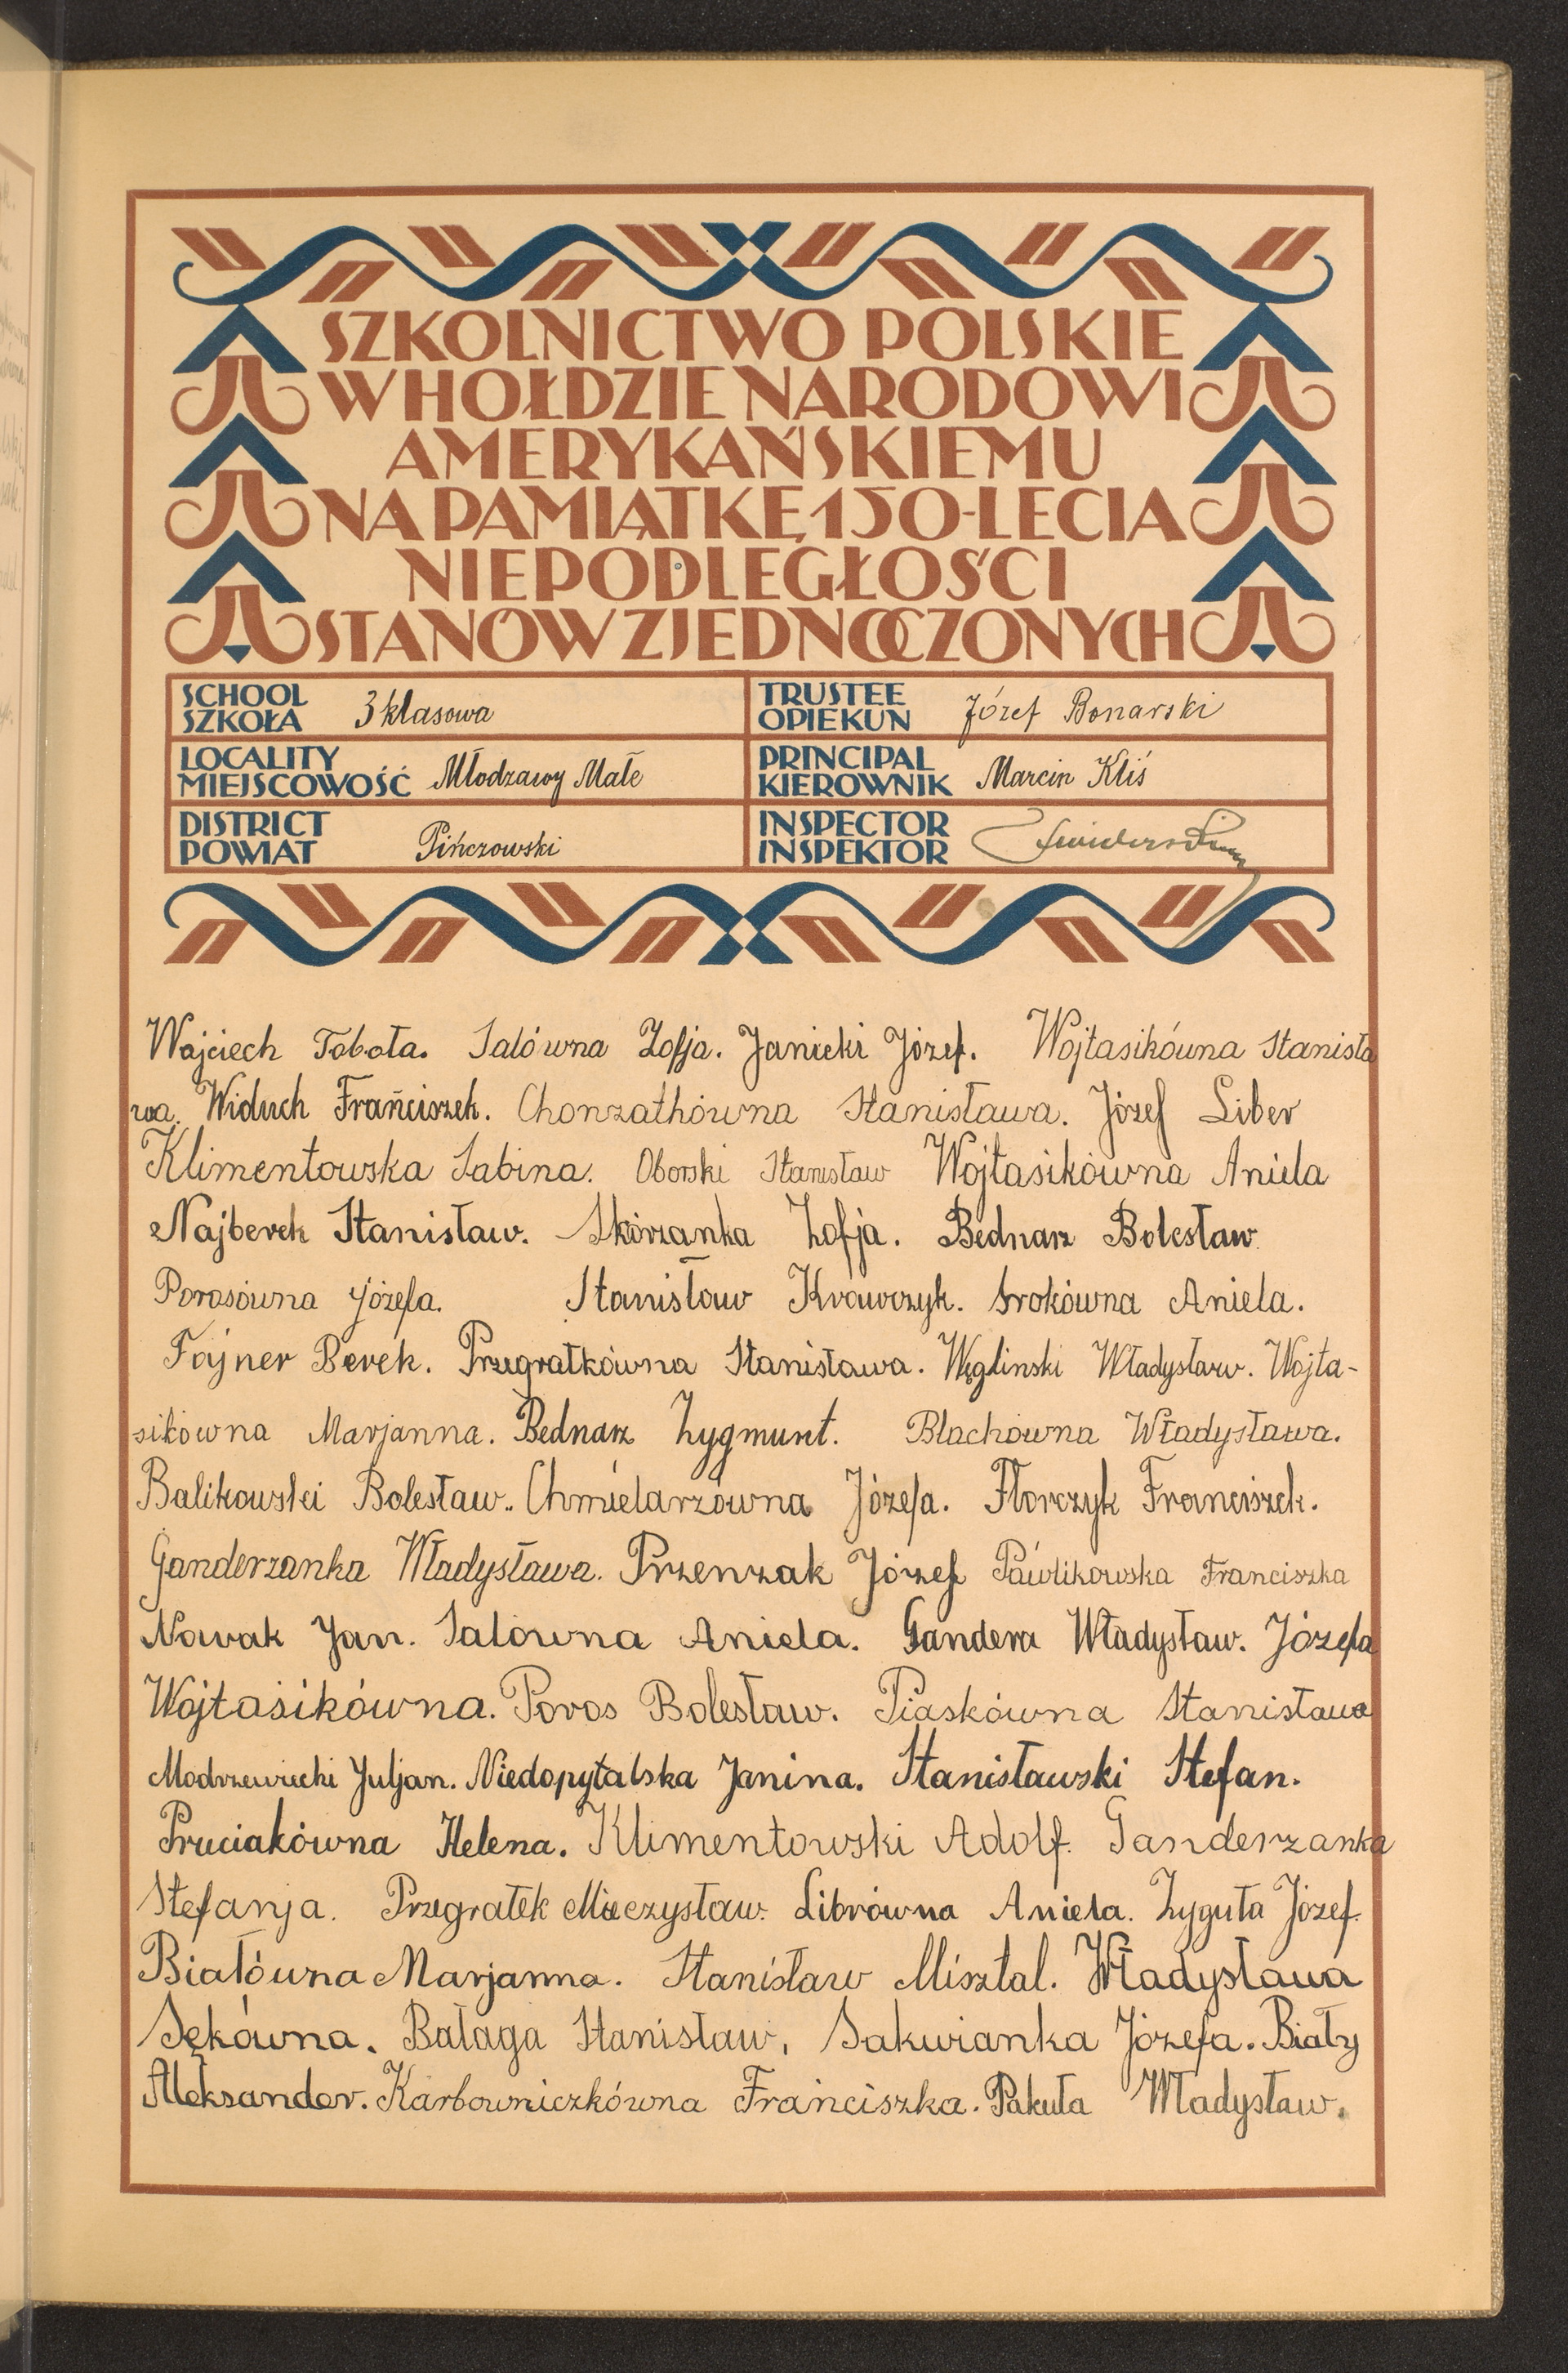 SZKOLNICTWO POLSKIE
W HOŁDZIE NARODOWI
AMERYKAŃSKIEMU
NA PAMIĄTKĘ 150-LECIA
NIEPODLEGŁOŚCI
STANÓW ZJEDNOCZONYCH
SCHOOL
SZKOŁA 3 klasowa
TRUSTEE
OPIEKUN Józef Bonarski
LOCALITY
MIEJSCOWOŚĆ Młodzawy Małe
PRINCIPAL
KIEROWNIK Marcin Kliś
DISTRICT
POWIAT Pińczowski
INSPECTOR
INSPEKTOR
Wojciech Toboła. Salówna Zofja. Janicki Józef. Wojtasikówna Stanisła
wa. Widuch Frańciszek. Chonzathówna Stanisława. Józef Liber
Klimentowska Sabina. Oborski Stanisław Wojtasikówna Aniela
Najberek Stanisław. Skórzanka Zofja. Bednarz Bolesław
Porosówna Józefa. Stanisław Krawczyk. Srokówna Aniela.
Fajner Berek. Przegratkówna Stanisława. Węglinski Władysław. Wojta-
sikówna Marjanna. Bednarz Zygmunt. Blachówna Władysława.
Balikowski Bolesław. Chmielarzówna Józefa. Florczyk Franciszek.
Ganderzanka Władysława. Przenzak Józef Pawlikowska Franciszka
Nowak Jan. Salówna Aniela. Gandera Władysław. Józefa
Wojtasikówna. Poros Bolesław. Piaskówna Stanisława
Modrzewiecki Juljan. Niedopytalska Janina. Stanisławski Stefan.
Pruciakówna Helena. Klimentowski Adolf. Ganderzanka
Stefanja. Przegratek Mieczysław. Librówna Aniela. Zyguła Józef.
Białówna Marjanna. Stanisław Misztal. Władysława
Sękówna. Bałaga Stanisław. Sakwianka Józefa. Biały
Aleksander. Karbowniczkówna Frańciszka. Pakuła Władysław.